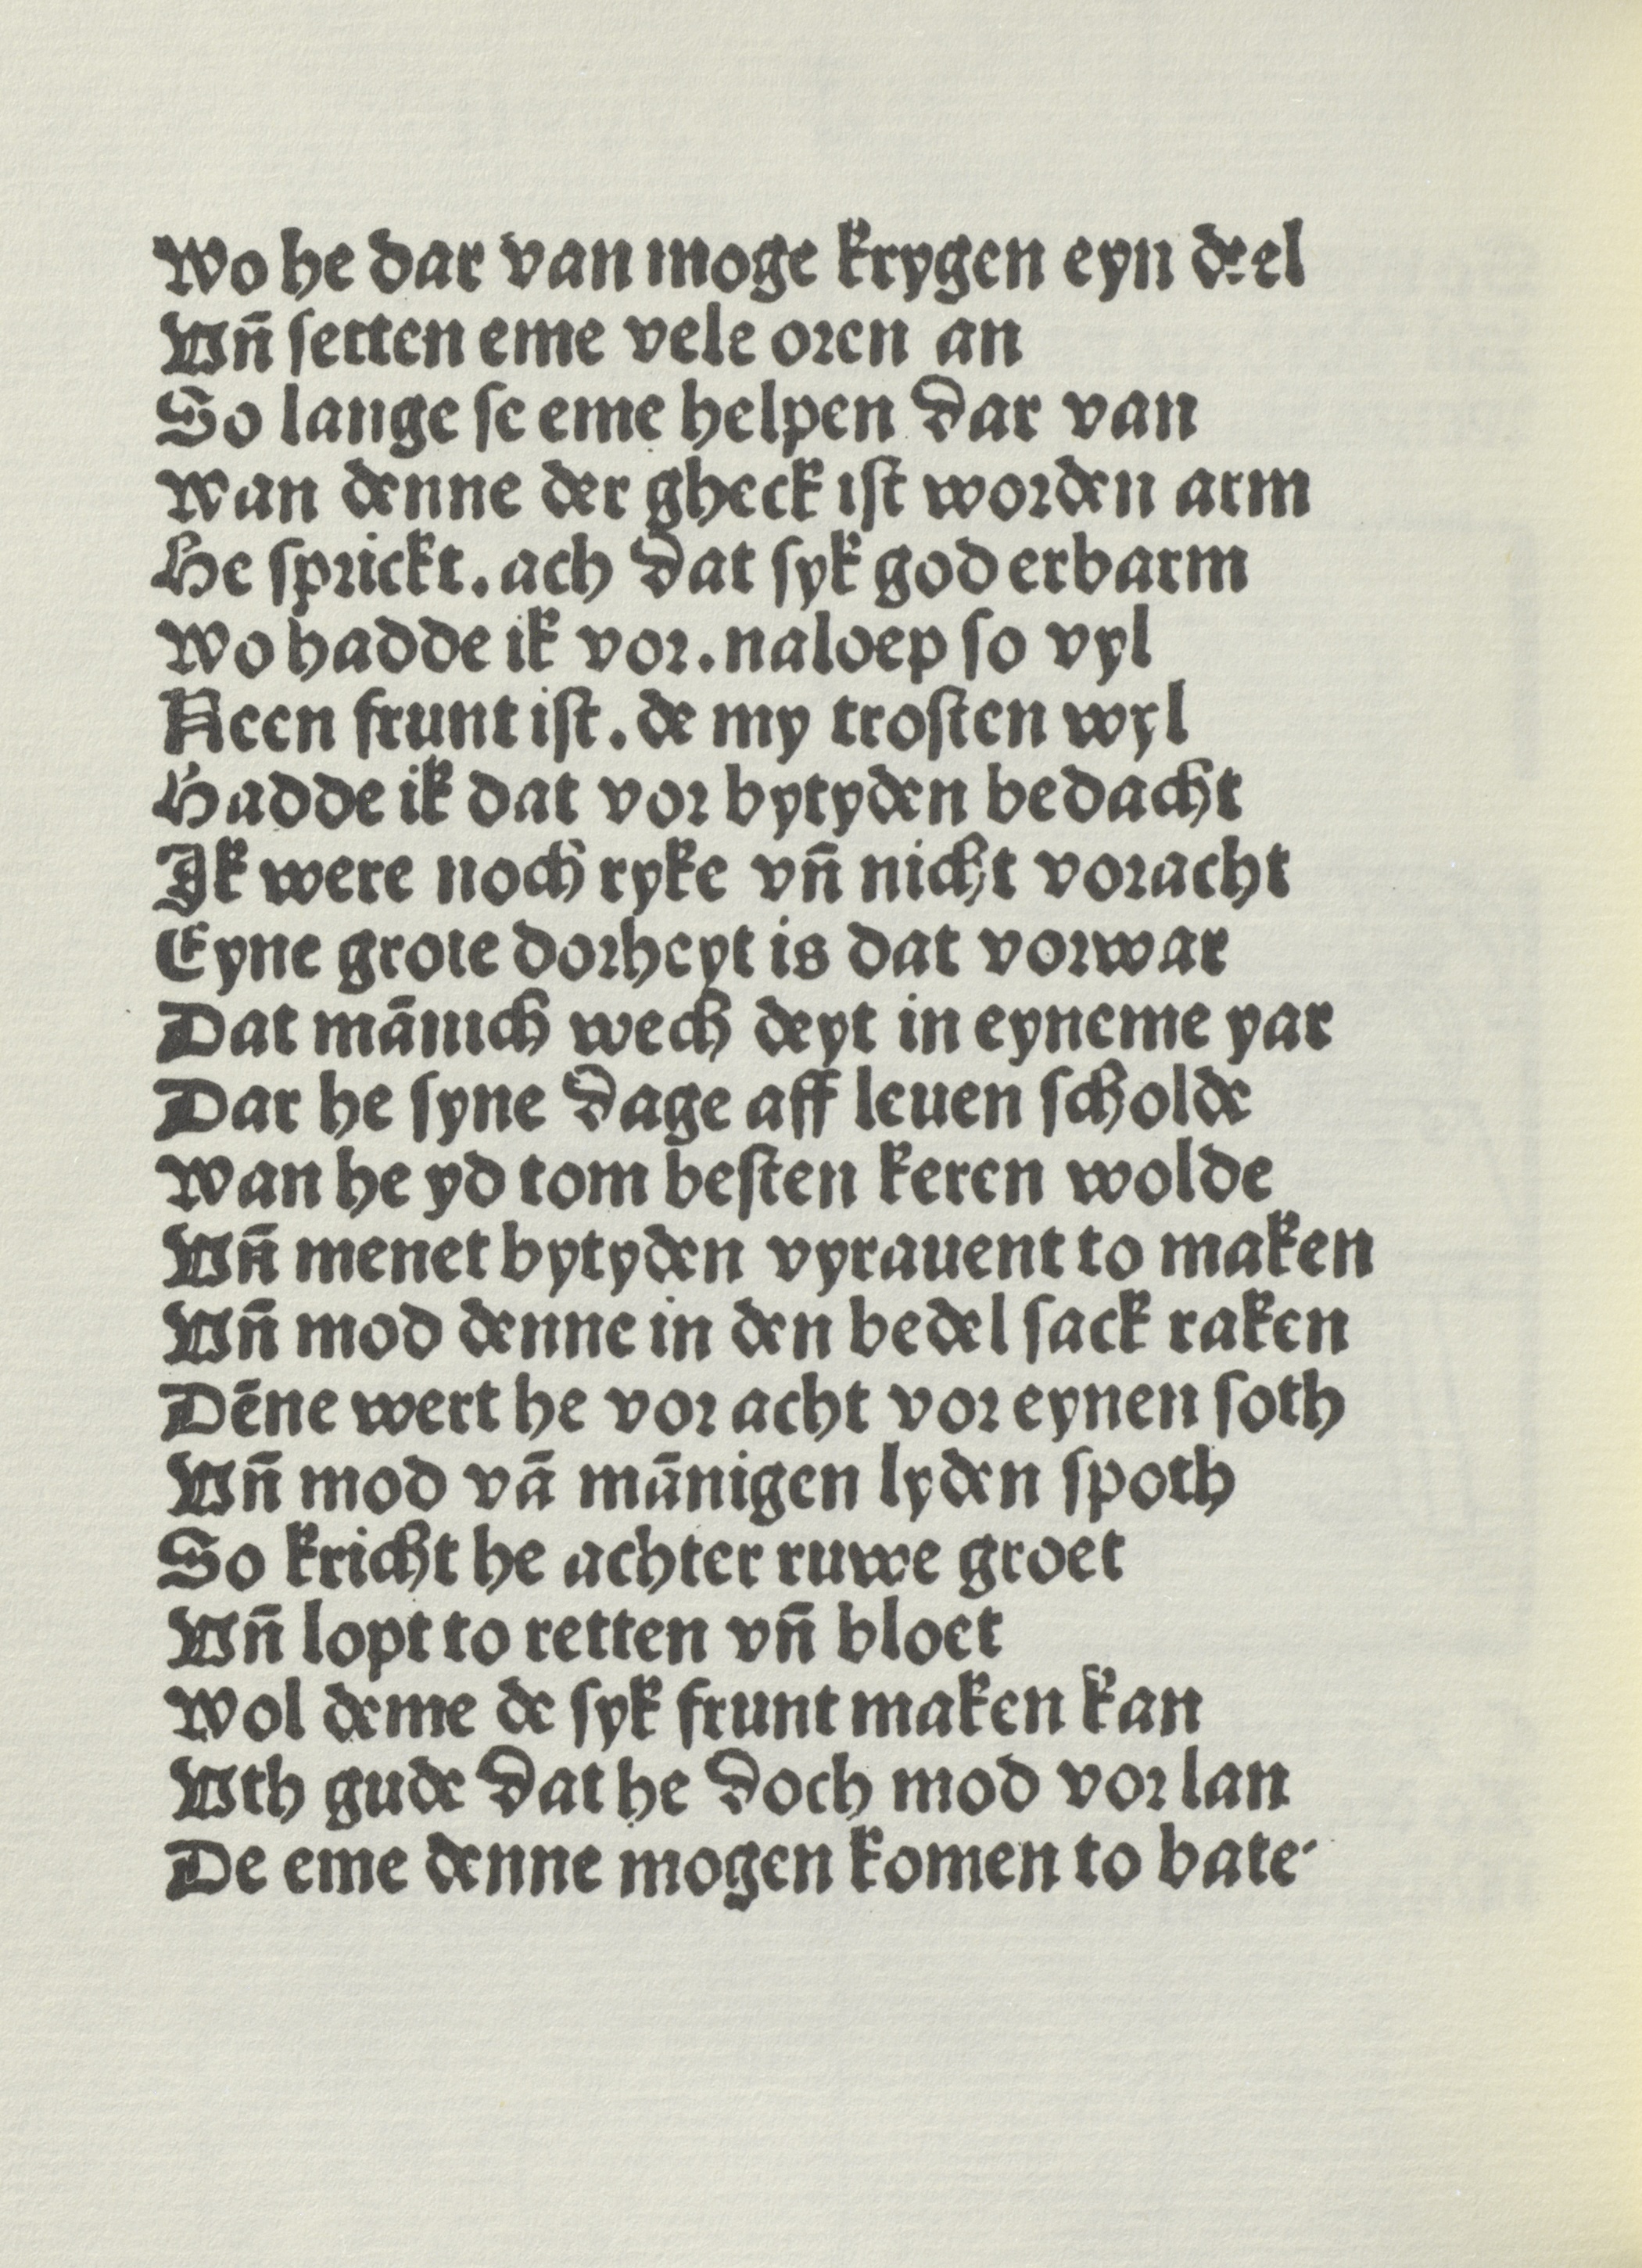 Wo he dar van moge krygen eyn deel
Vnn̄ setten eme vele oren an
So lange se eme helpen dar van
Wan denne der gheck ist worden arm
He sprickt. ach dat syk god erbarm
Wo hadde ik vor. naloep so vyl
Neen frunt ist. de my trosten wyl
Hadde ik dat vor bytyden bedacht
Ik were noch ryke vn̄ nicht voracht
Eyne grote dorheyt is dat vorwar
Dat mānich wech deyt in eyneme yar
Dar he syne dage aff leuen scholde
Wan he yd tom besten keren wolde
Vn̄ menet bytyden vyrauent to maken
Vn̄ mod denne in den bedel sack raken
Dēne wert he vor acht vor eynen soth
Vn̄ mod vā mānigen lyden spoth
So kricht he achter ruwe groet
Vn̄ lopt to retten vn̄ bloet
Wol deme de syk frunt maken kan
Vth gude dat he doch mod vor lan
De eme denne mogen komen to bate